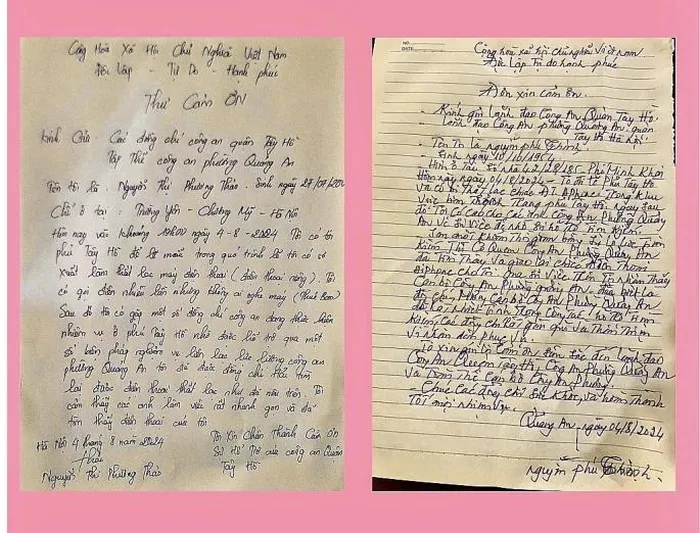 Cộng Hoà Xã Hội Chủ Nghĩa Việt Nam
Độc Lập - Tự Do - Hạnh phúc
Thư Cảm Ơn
Kính Gửi: Các đồng chí công an quận Tây Hồ
Tập Thể công an phường Quảng An
Tên tôi là: Nguyễn Thị Phương Thảo. Sinh ngày 27/07/
Chỗ ở tại: Trường Yên - Chương Mỹ - Hà Nội
Hôm nay vào khoảng ngày 4-8-2024 Tôi có tới
phủ Tây Hồ để lễ trong quá trình lễ tôi có sơ
xuất làm thất lạc máy điện thoại (điện thoại riêng). Tôi
có gọi điện nhiều lần nhưng không ai nghe máy
Sau đó tôi có gặp một số đồng chí công an đang thực hiện
nhiệm vụ ở phủ Tây Hồ nhờ được hỗ trợ qua một
số biện pháp nghiệp vụ liên lạc lực lượng công an
phường Quảng An tôi đã được đồng chí tìm
lại được điện thoại thất lạc như đã nêu trên. Tôi
cảm thấy các anh làm việc rất nhanh gọn và đã
tìm thấy điện thoại của tôi
Hà Nội 4 tháng 8 năm 2024
Tôi Xin Chân Thành Cảm Ơn
Sự Hỗ Trợ của công an Quận
Tây Hồ
Thảo
Nguyễn Thị Phương Thảo
NO
DATE
Cộng hòa xã hội chủ nghĩa Việt nam
Độc lập Tự do hạnh phúc
Đơn xin cảm ơn.
- Kính gửi Lãnh đạo Công An Quận Tây Hồ.
Lãnh đạo Công An phường Quảng An quận
Tây Hồ Hà Nội.
- Tên Tôi là nguyễn phú Thành
Sinh ngày 10/10/1964
Hiện ở Tại Số nhà 42/28/85 Phố Minh Khai
Hôm nay ngày 04/8/2024 Tôi đi lễ Phủ Tây Hồ
và có bị Thất lạc chiếc ĐT Aphone Trong Khu
vực Phủ Tây Hồ ngay sau
đó Tôi Có báo cho các anh Công An Phường Quảng
An Về Sự Việc để nhờ Sự hỗ Trợ Tìm Kiếm.
Sau một khoảng Thời gian
Kiếm Thì Cơ Quan Công An Phường Quảng An
đã Tìm Thấy Và giao lại chiếc điện Thoại
Aiphone cho Tôi qua Sự Việc Trên Tôi Nhận Thấy
Cán bộ Công An Phường Quảng An
Cán bộ Công An Phường Quảng An
Trong Công Tác hỗ Trợ Tìm
Kiếm, Các đồng chí rất gọn gàng và Thân Thiện
Vì Nhân dân phục vụ.
Tôi xin gửi lời Cảm ơn sâu sắc đến Lãnh đạo
Công An Quận Tây Hồ, Công An Phường Quảng An
Và Toàn Thể Cán bộ Công An Phường.
Chúc Các đồng chí Sức Khỏe, Và hoàn Thành
Tốt mọi Nhiệm Vụ.
Quảng An, ngày 04/8/2024
nguyễn phú Thành.